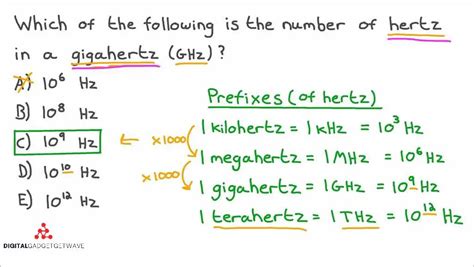 Which of the following is the number of hertz
in a gigahertz (GHz)?
A) 10⁶ Hz
B) 10⁸ Hz
C) 10⁹ Hz
D) 10¹⁰ Hz
E) 10¹² Hz
Prefixes (of hertz)
1 kilohertz = 1 kHz = 10³ Hz
x1000
1 megahertz = 1 MHz = 10⁶ Hz
x1000
1 gigahertz = 1 GHz = 10⁹ Hz
1 terahertz = 1 THz = 10¹² Hz
DIGITALGADGETGETWAVE